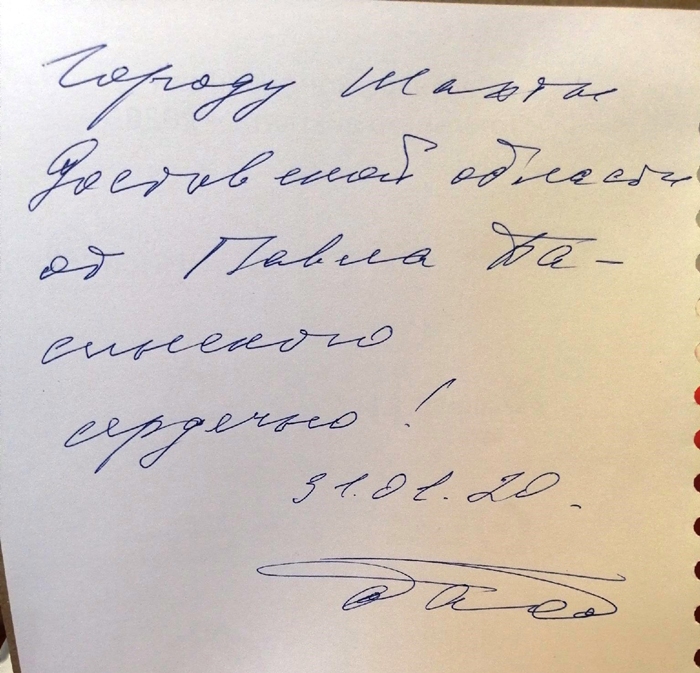 Городу Шахты
Ростовской области
от Павла Ба-
синского
сердечно!
31.01.20.